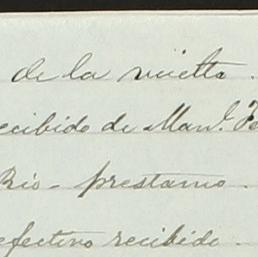 de la vuelta
ecibido de Man.l Fe
Rio - prestamo
efectivo recibido